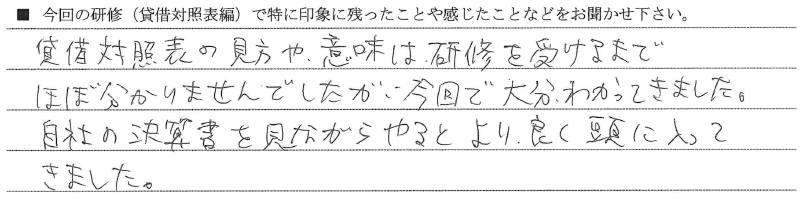 ■ 今回の研修（貸借対照表編）で特に印象に残ったことや感じたことなどをお聞かせ下さい。
貸借対照表の見方や、意味は、研修を受けるまで
ほぼ分かりませんでしたが、今回で大分わかってきました。
自社の決算書を見ながらやるとより、良く頭に入って
きました。